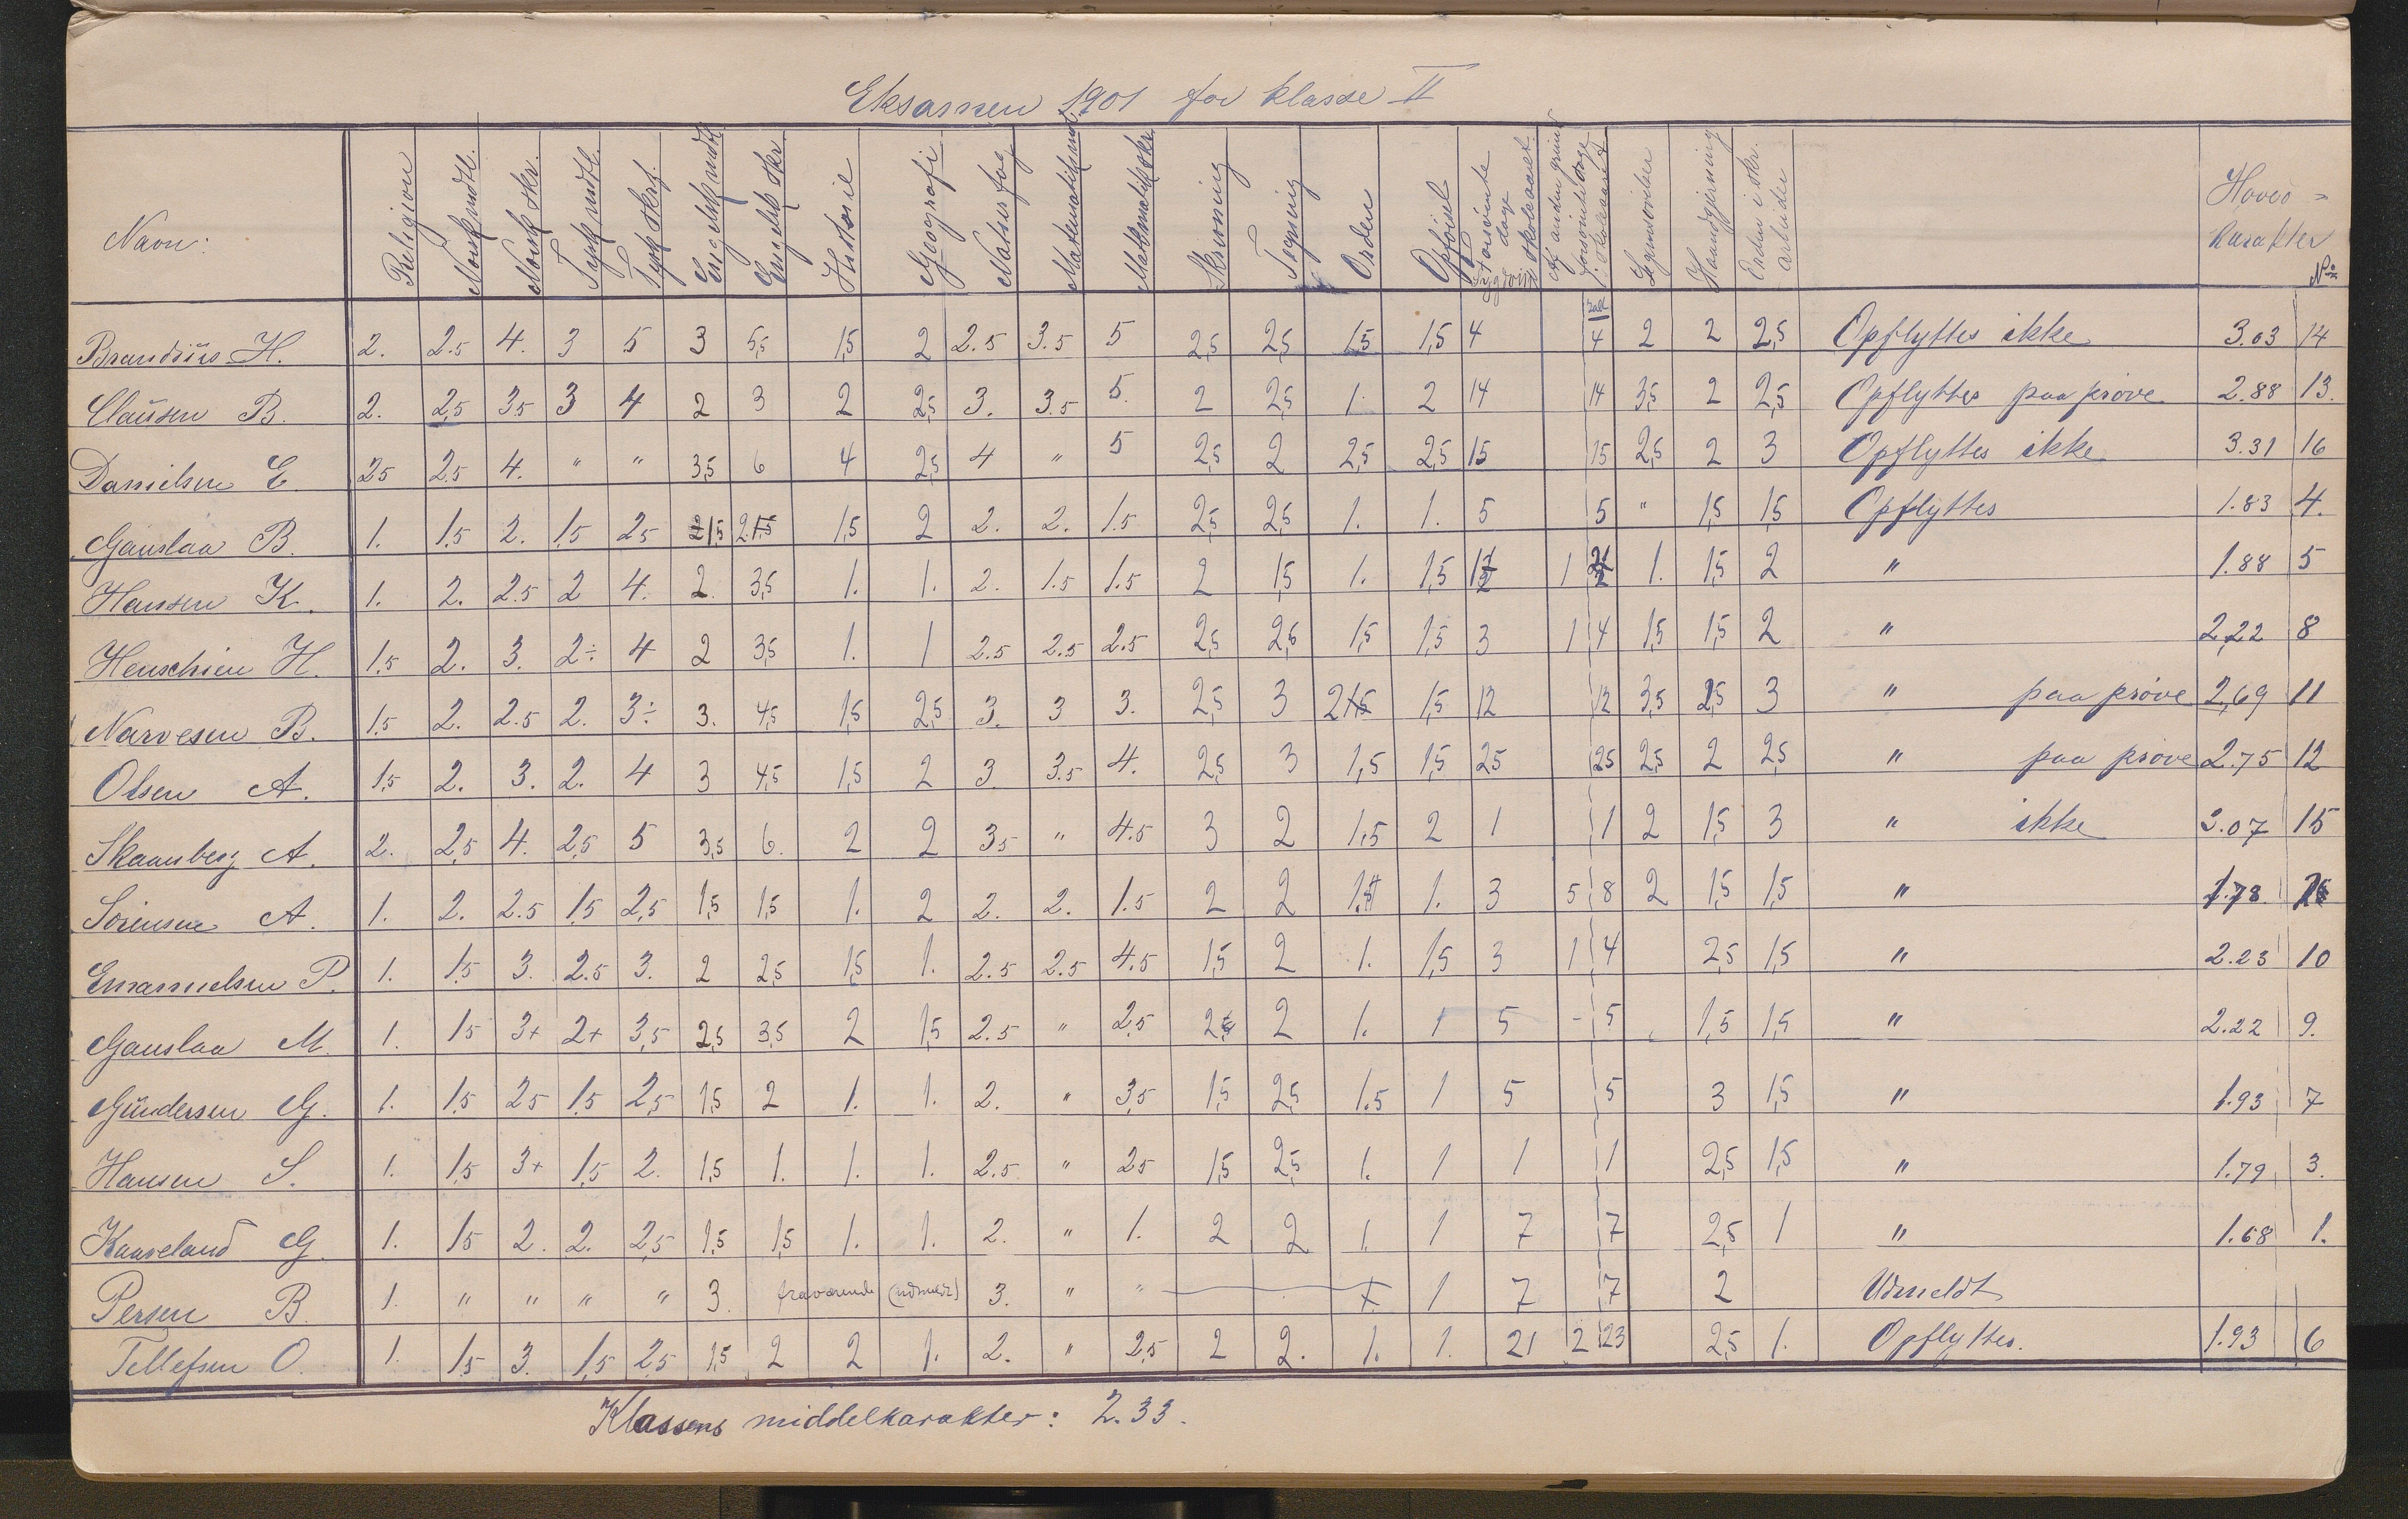 Eksamen 1901 for klasse II
Navn: Religion Norsk mdtl. Norsk skr. Tysk mdtl. Tysk skrf. Engelsk mdtl Engelsk skr Historie Geografi Naturfag Matematik mdtl Matematik skr. Skrivning Tegning Orden Opførsel forsømte dage i skoleaaret Af anden grund forsømte dage i skoleaaret Haandgjerning Orden i skr. arbeider Hoved= karakter No
Brandsüs H. 2. 2.5 4. 3 5 3 5,5 1,5 2 2.5 3.5 5 2,5 2,5 1,5 1,5 4 4 2 2 2,5 Opflyttes ikke 3.03 14
Claüsen B. 2. 2,5 3,5 3 4 2 3 2 2,5 3. 3.5 5. 2 2,5 1. 2 14 14 3,5 2 2,5 Opflyttes paa prøve 2.88 13.
Danielsen E. 2,5 2,5 4. " " 3,5 6 4 2,5 4 " 5 2,5 2 2,5 2,5 15 15 2,5 2 3 Opflyttes ikke 3.31 16
Gauslaa B. 1. 1.5 2. 1,5 2,5 1,5 1,5 2 2. 2. 1.5 2,5 2,5 1. 1. 5 5 " 1,5 1,5 Opflyttes 1.83 4.
Hansen K. 1. 2. 2.5 2 4. 2. 3,5 1. 1. 2. 1.5 1.5 2 1,5 1. 1,5 1 1. 1,5 2 " 1.88 5
Henschien H. 1.5 2. 3. 2÷ 4 2 3,5 1. 1 2.5 2.5 2.5 2,5 2,5 1,5 1,5 3 1 4 1,5 1,5 2 " 2,22 8
Narvesen B. 1.5 2. 2.5 2. 3÷ 3. 4,5 1,5 2,5 3. 3 3. 2,5 3 2 1,5 12 12 3,5 2,5 3 " paa prøve 2,69 11
Olsen A. 1,5 2. 3. 2. 4 3 4,5 1,5 2 3. 3.5 4. 2,5 3 1,5 1,5 25 25 2,5 2 2,5 " paa prøve 2.75 12
Skaanberg A. 2. 2,5 4. 2,5 5 3,5 6. 2 2 3.5 " 4.5 3 2 1,5 2 1 1 2 1,5 3 " ikke 3.07 15
Sørensen A. 1. 2. 2.5 1,5 2,5 1,5 1,5 1. 2 2. 2. 1.5 2 2 1. 3 5 8 2 1,5 1,5 " 1.78
Emanuelsen P. 1. 1.5 3. 2.5 3. 2 2,5 1,5 1. 2.5 2.5 4.5 1,5 2 1. 1,5 3 1 4 2,5 1,5 " 2.23 10
Gauslaa M. 1. 1.5 3+ 2+ 3,5 2,5 3,5 2 1,5 2.5 " 2,5 2 1. 1 5 - 5 1,5 1,5 " 2.22 9.
Gündersen G. 1. 1.5 2.5 1.5 2,5 1,5 2 1. 1. 2. " 3,5 1,5 2,5 1.5 1 5 5 3 1,5 " 1.93 7
Hansen S. 1. 1.5 3+ 1.5 2. 1,5 1. 1. 1. 2.5 " 2.5 1,5 2,5 1. 1 1 1 2,5 1,5 " 1.79 3.
Kaaveland G. 1. 1.5 2. 2. 2,5 1,5 1,5 1. 1. 2. " 1. 2 2 1. 1 7 7 2,5 1 " 1.68 1.
Persen B. 1. " " " " 3. fraværende (udmeldt) 3. " " 1 7 7 2 Udmeldt
Tellefsen O. 1. 1.5 3. 1,5 2,5 1,5 2 2 1. 2. " 2,5 2 2. 1. 1. 21 2 23 2,5 1. Opflyttes. 1.93 6
Klassens middelkarakter: 2.33.